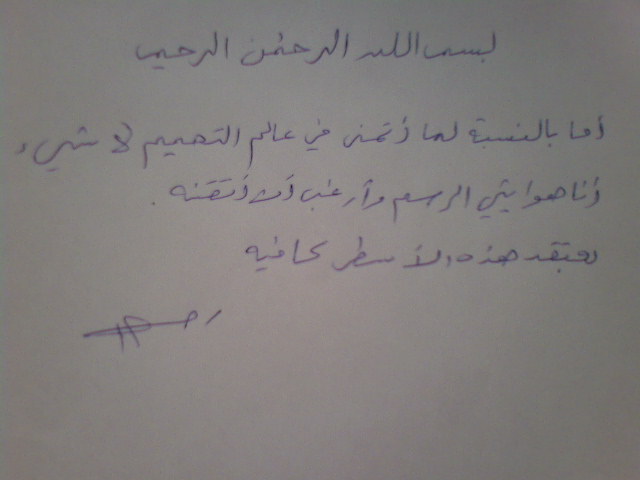 بسم الله الرحمن الرحيم
أما بالنسبة لما أتمنى في عالم التصميم لا شيء
أنا هوايتي الرسم وأرغب أن أتقنه .
هذه الأسطر كافيه